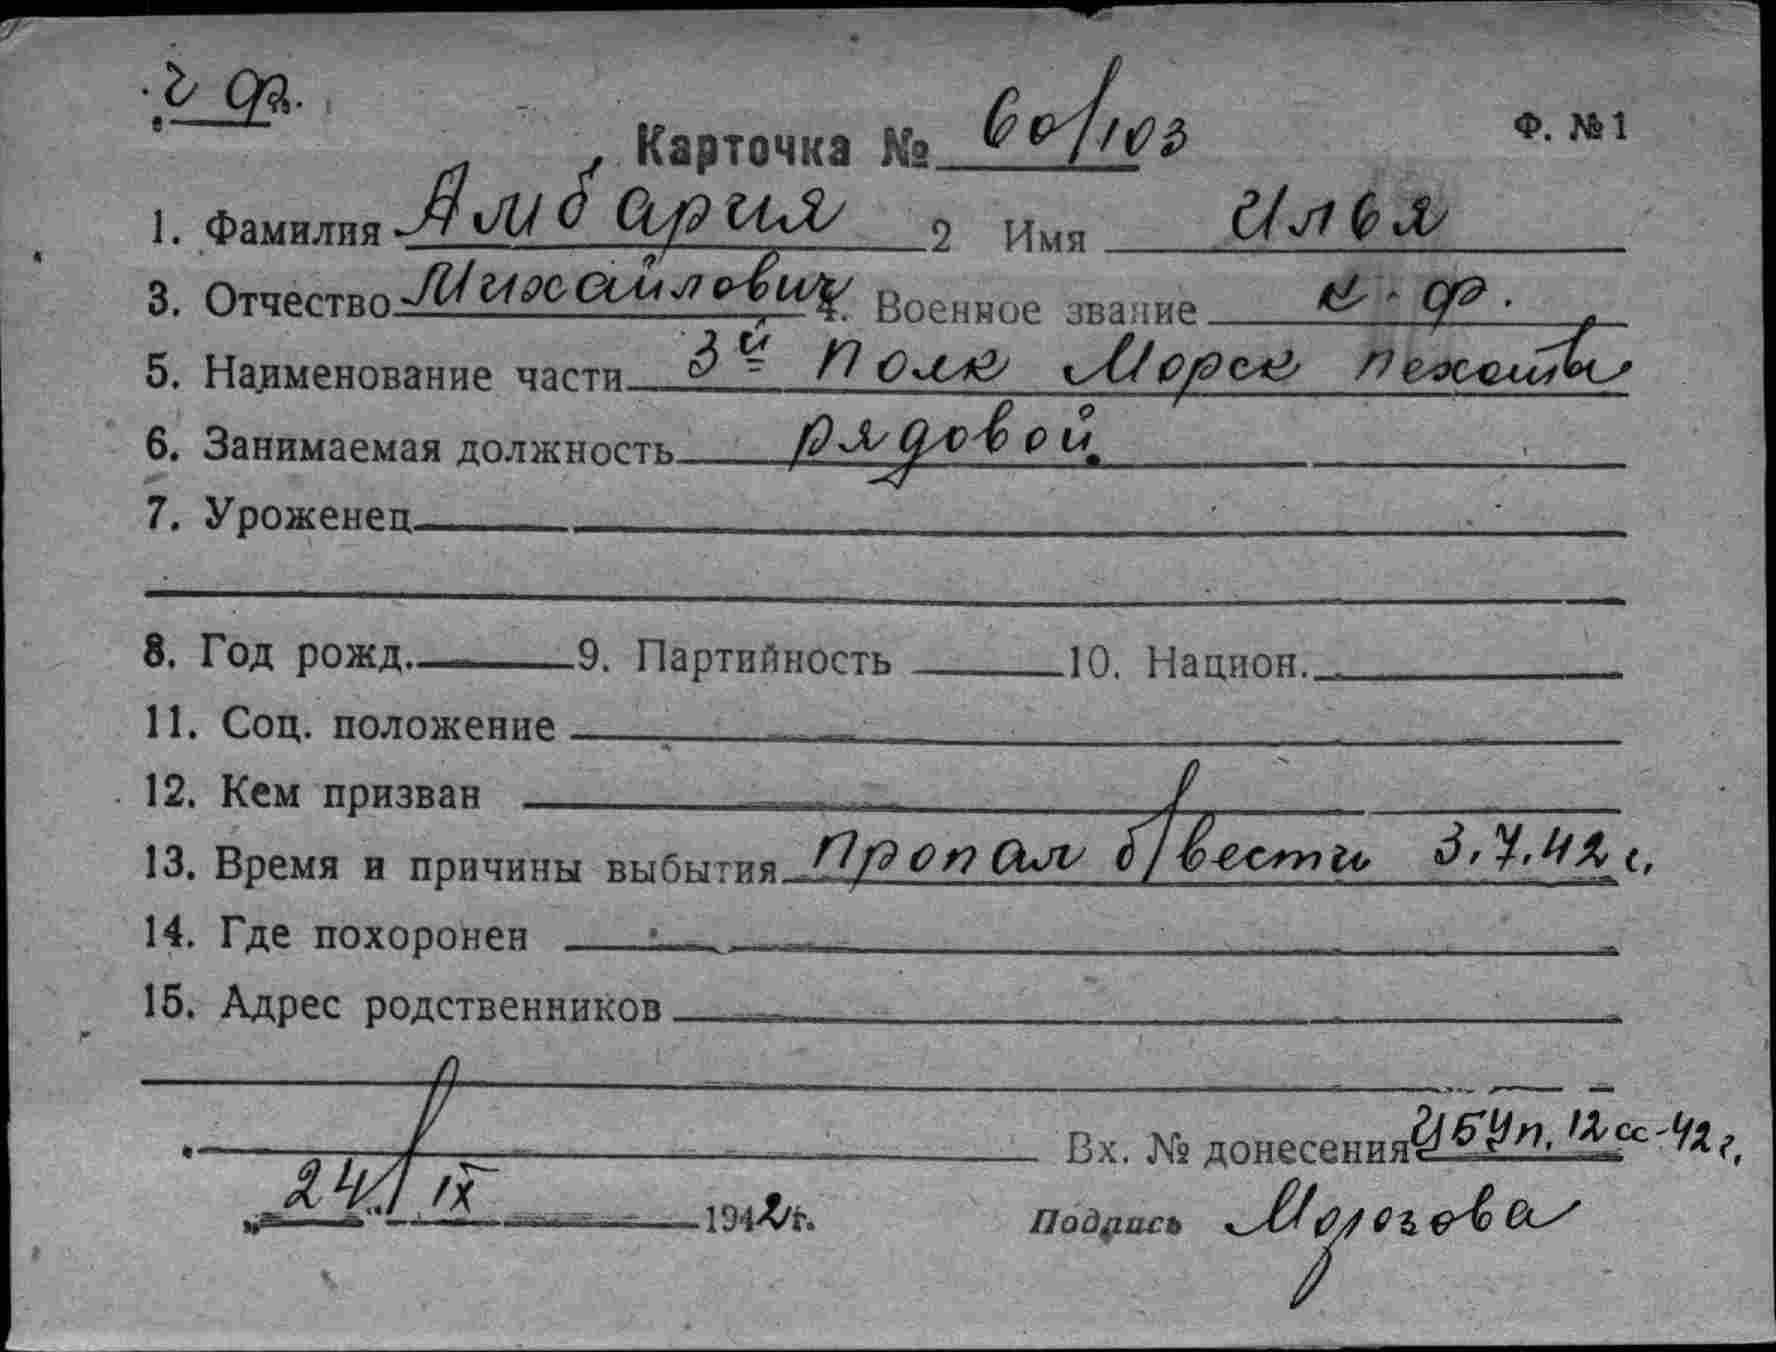 ч ф.
Карточка № 60/103 Ф. №1
1. Фамилия Амбария 2 Имя Илья
3. Отчество Михайлович 4. Военное звание к. ф.
5. Наименование части 3й Полк Морск пехоты
6. Занимаемая должность рядовой.
7. Уроженец
8. Год рожд. 9. Партийность 10. Национ.
11. Соц. положение
12. Кем призван
13. Время и причины выбытия Пропал б/вести 3.7.42 г.
14. Где похоронен
15. Адрес родственников
Вх. № донесения 12 сс-42 г.
24/IX 1942 г. Подпись Морозова